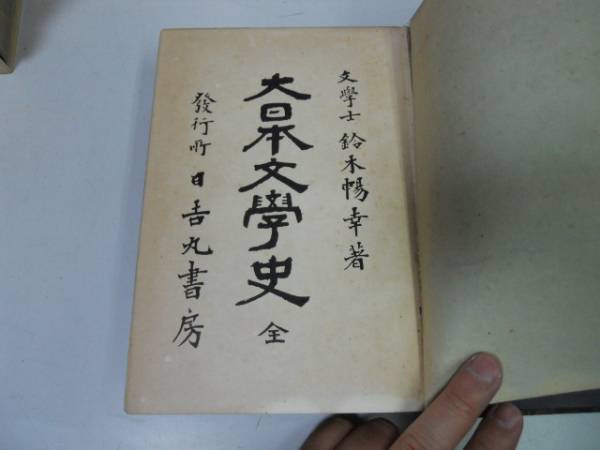 文學士 鈴木暢幸著
大日本文學史 全
發行所 日吉丸書房